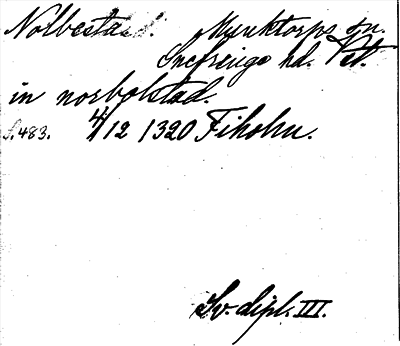 Nolbestad. Munktorps sn.
Snefringe hd. Vstl.
in norbolstad.
s. 483. 4/12 1320 Fiholm.
Sv. dipl. III.